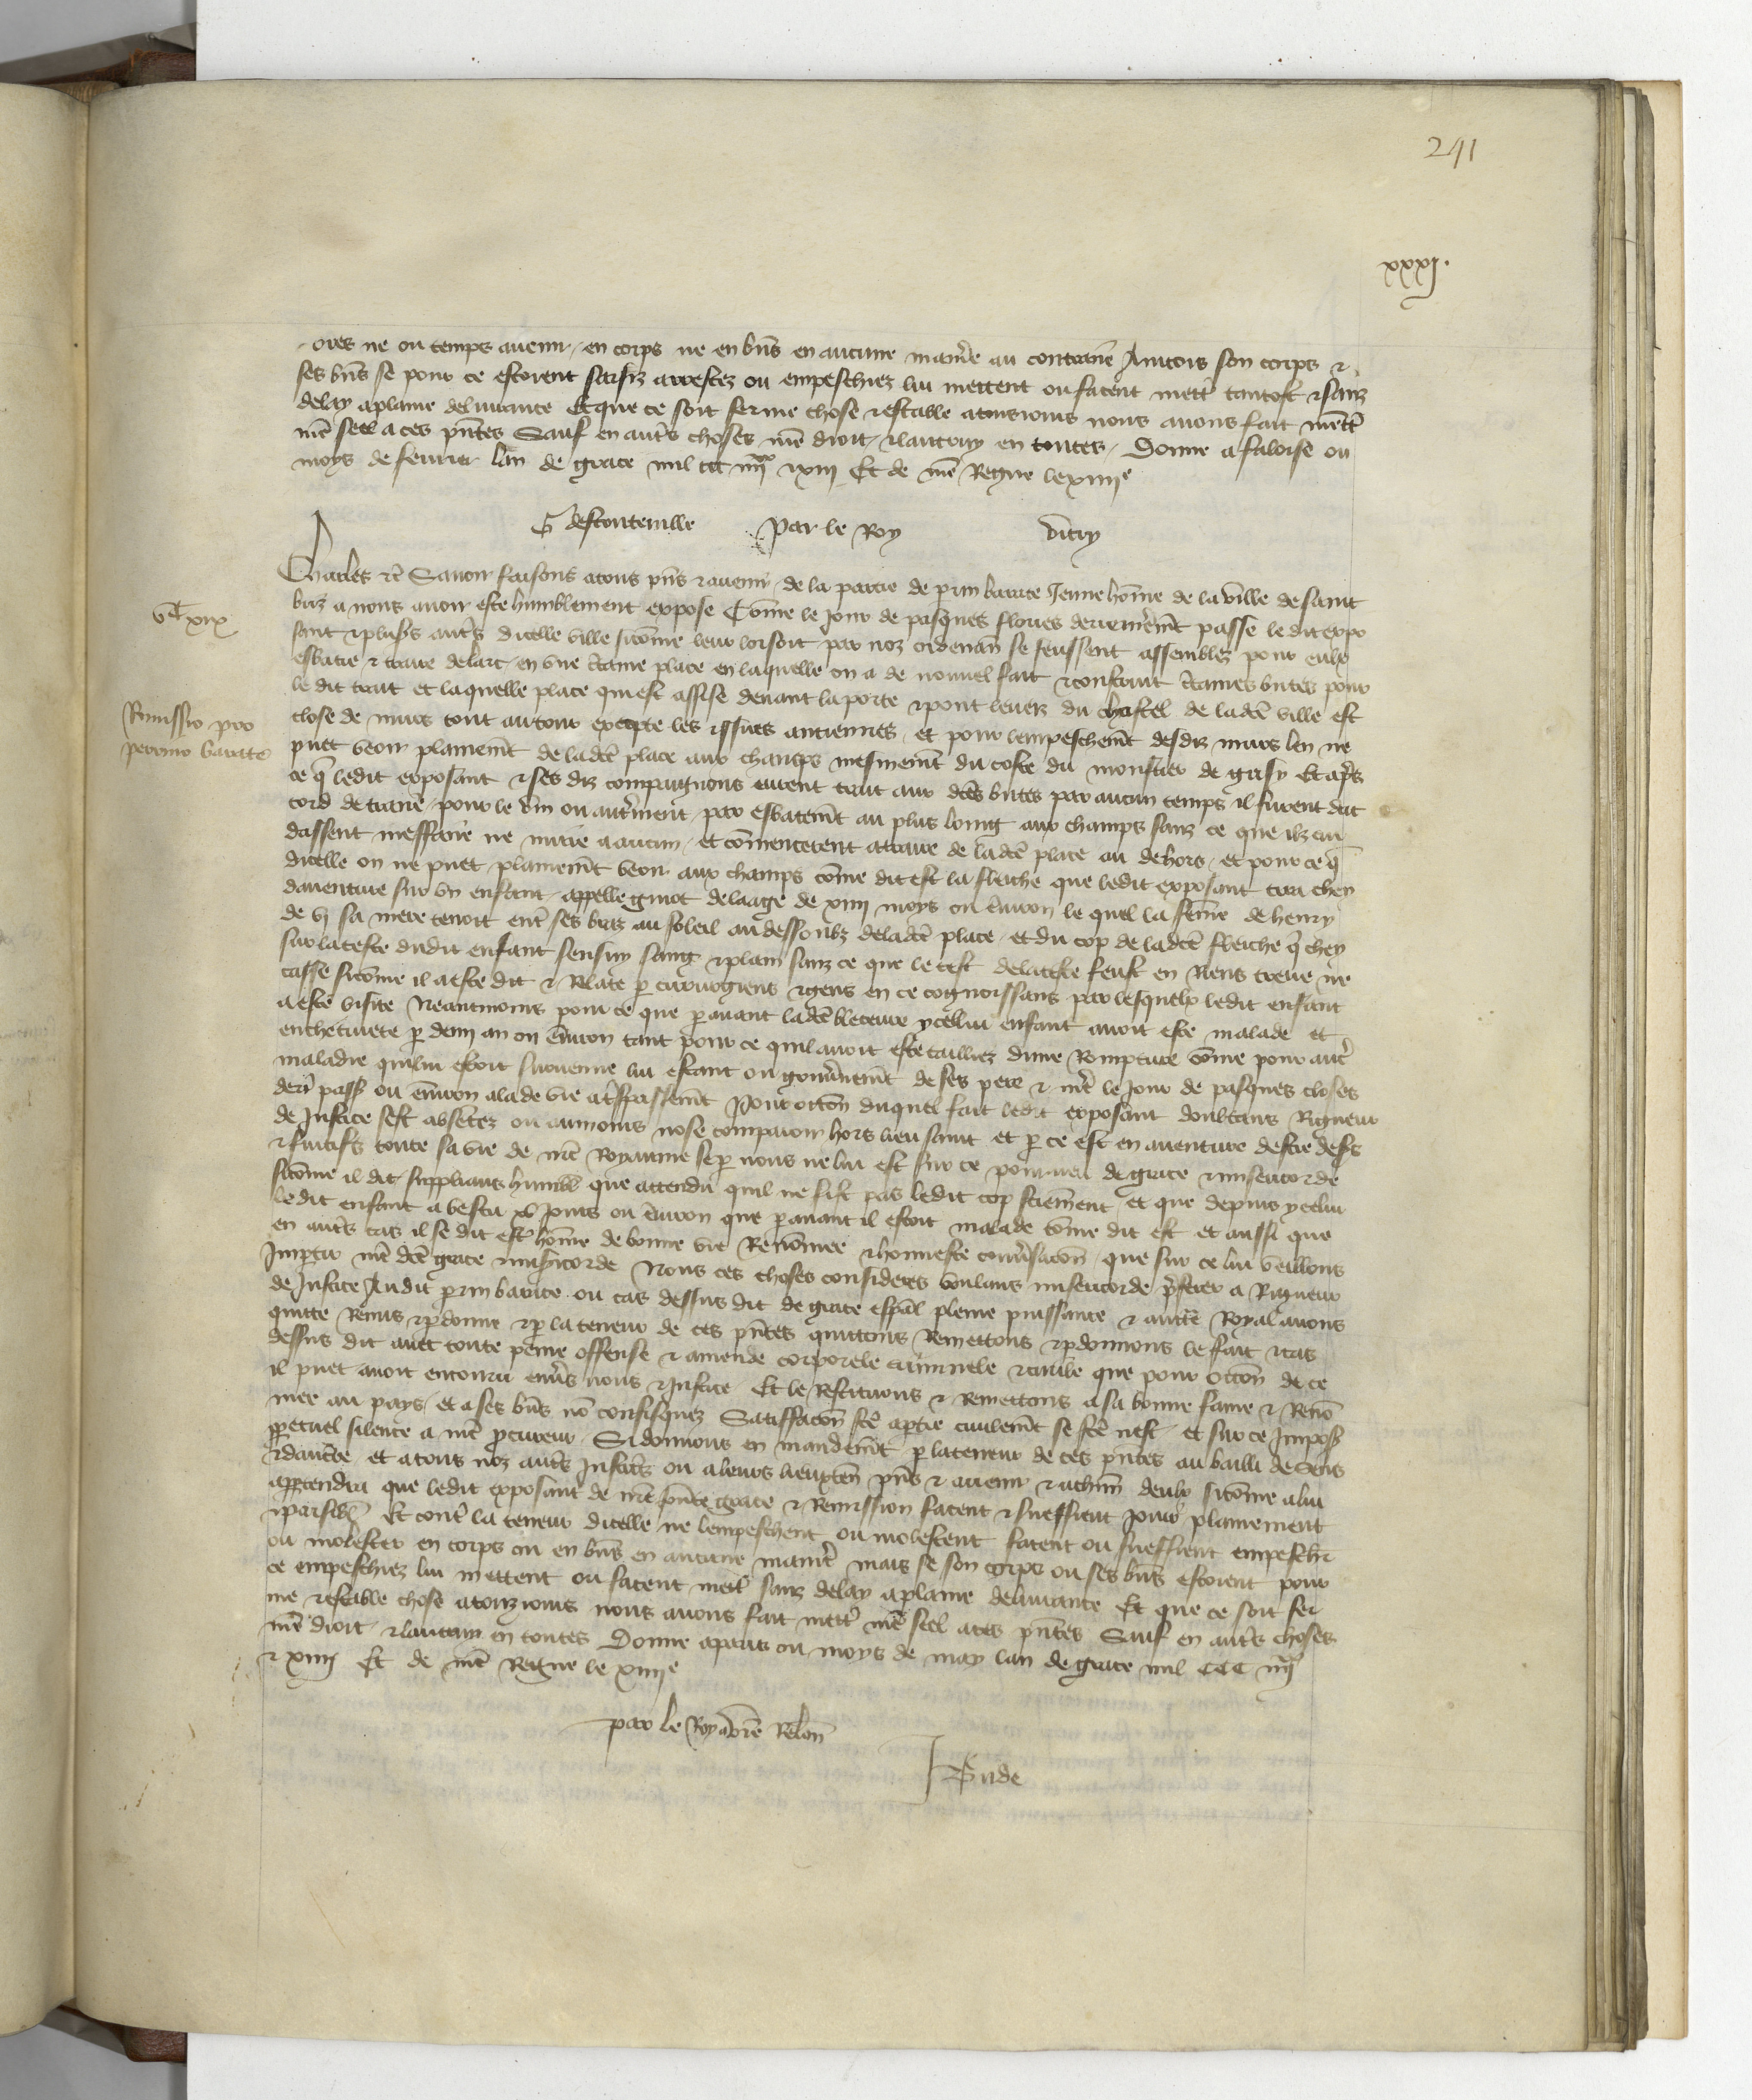 241
xxxj.
ores ne ou temps avenir en corps ne en biēs en aucune manie au contraire Aincois son corps ⁊
ses biēs se pour ce estoient saisiz arrestez ou empeschiez lui mettent ou facent mettr tantost ⁊ sanz
delay a plaine delivrance Et que ce soit ferme chose ⁊ estable a tousiours nous avons fait mettr
nre seel a ces pntes Sauf en autrs choses nre droit ⁊ lautruy en toutes Donne a faloise ou
moys de fevrier lan de grace mil ccc iiijxx ⁊ xiij Et de nre Regne le xiiije
G destouteville Par le Roy vitry
vc xix
Charles etc Savoir faisons a tous pns ⁊ avenir de la partie de prin barate Jeune home de la ville de saint
briz a nous avoir este humblement expose Come le jour de pasques flories dernieremt passe le dit expo
sant ⁊ plusrs autrs dicelle ville sicome leur loisoit par noz ordenan se feussent assemblez pour eulx
esbatre ⁊ traire de larc en une ctaine place en laquelle on a de nouvel fait ⁊ construit ctaines butes pour
le dit trait et laquelle place qui est assise devant la porte ⁊ pont leveiz du chastel de ladce ville est
Remissio pro
perrino barate
close de murs tout autour excepte les yssues anciennes et pour lempeschemt desdiz murs len ne
puet veoir plainemt de ladce place aux champs mesmemt du coste du monstier de gisy Et aprs
ce q ledit exposant ⁊ ses diz compaignons eurent trait aux dces butes par aucun temps il furent dac
cord de traire pour le vin ou autrement par esbatemt au plus loing aux champs sanz ce que ilz cui
dassent meffaire ne nuire a aucun et comencerent a traire de ladce place au dehors et pour ce q
dicelle on ne puet plainemt veoir aux champs come dit est la fleiche que ledit exposant tira chey
daventure sur un enfant appelle giriot de laage de xiiij moys ou environ le quel la feme de henry
de vj sa mere tenoit entr ses braz au soleil au dessoubz de ladce place et du cop de ladce fleiche q chey
sur la teste dudit enfant sensui sang ⁊ plaie sanz ce que le test de la teste feust en riens creve ne
casse sicome il a este dit ⁊ relate p cirurgiens ⁊ gens en ce cognoissans par lesquelx ledit enfant
a este visite Neantmoins pour ce que p avant ladce bleceure ycellui enfant avoit este malade et
enchetivete p demi an ou environ tant pour ce quil avoit este tailliez dune rompture come pour autr
maladie qui lui estoit survenue lui estant ou gouvernemt de ses pere ⁊ mere le jour de pasques closes
derr passe ou environ ala de vie a trespassemt Pour occon duquel fait ledit exposant doubtans Rigueur
de Justice sest absentez ou aumoins nose comparoir hors lieu saint et p ce est en aventure destre deses
⁊ fuitifs toute sa vie de nre Royaume se p nous ne lui est sur ce pourveu de grace ⁊ misericorde
sicome il dit suppliant humblt que attendu quil ne fist pas ledit cop sciement et que depuis ycelui
ledit enfant a vescu xv jours ou environ que p avant il estoit malade come dit est et aussi que
en autrs cas il se dit estr home de bonne vie Renomee ⁊ honneste conversacion que sur ce lui veillions
Impartir nre dce grace misericorde Nous ces choses considerees voulans misericorde preferer a Rigueur
de Justice Audit prin barate ou cas dessus dit de grace espal pleine puissance ⁊ auctte Royal avons
quitte Remis ⁊ pdonne ⁊ p la teneur de ces pntes quittons Remettons ⁊ pdonnons le fait ⁊ cas
dessus dit avec toute peine offense ⁊ amende corporele criminele ⁊ civile que pour occon de ce
il puet avoir encouru envrs nous ⁊ Justice Et le restituons ⁊ remettons a sa bonne fame ⁊ Reno
mee au pays et a ses biēs no confisquez Satisfaccon fte a ptie civilemt se fte nest et sur ce Imposs
ppetuel silence a nre procureur Si donnons en mandemt p la teneur de ces pntes au bailli de Sens
⁊ daucerre et a tous noz autrs Justicrs ou a leurs lieuxten pns ⁊ avenir ⁊ a chun deulx sicome a lui
appartendra que ledit exposant de nre pnte grace ⁊ Remission facent ⁊ sueffrent joir plainement
⁊ paisiblt Et contr la teneur dicelle ne lempeschent ou molestent facent ou sueffrent empeschr
ou molester en corps ou en biēs en aucune manier mais se son corps ou ses biēs estoient pour
ce empeschiez lui mettent ou facent mettr sanz delay a plaine delivrance Et que ce soit fer
me ⁊ estable chose a touzjours nous avons fait mettr nre seel a ces pntes Sauf en autrs choses
nre droit ⁊ lautrui en toutes Donne a paris ou moys de may lan de grace mil CCC iiijxx
⁊ xiiij Et de nre Regne le xiiije
par le Roy a vre relon
J Bude